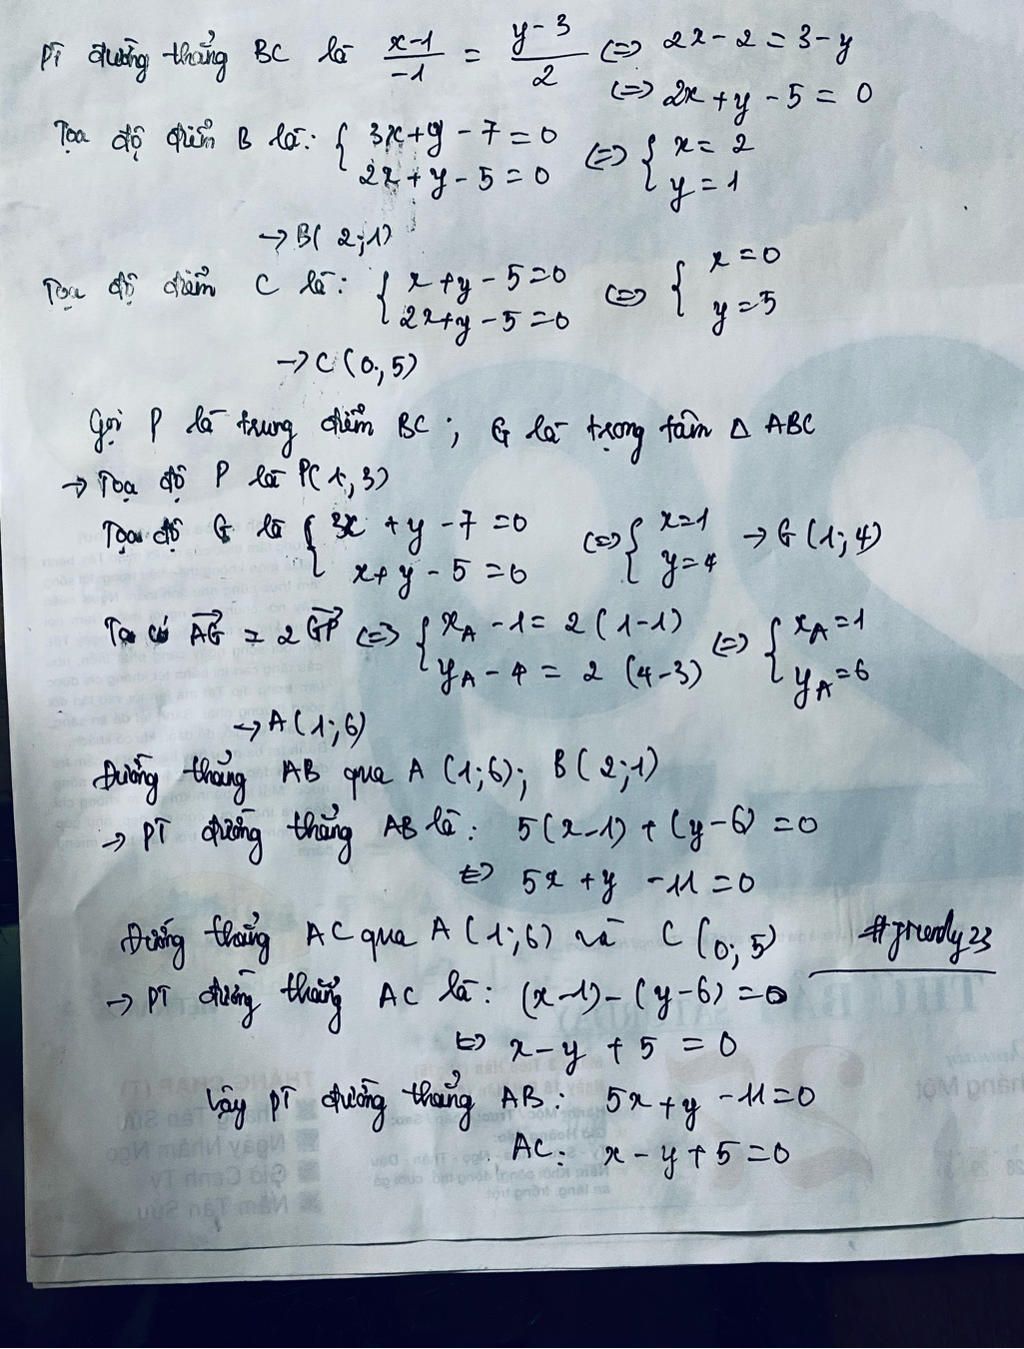 PT đường thẳng BC là x-1/-1 = y-3/2 <=> 2x-2=3-y
<=> 2x+y-5=0
Tọa độ điểm B là: { 3x+y-7=0 <=> { x=2
2x+y-5=0 y=1
→B(2;1)
Tọa độ điểm C là: { x+y-5=0 <=> { x=0
2x+y-5=0 y=5
→C(0;5)
Gọi P là trung điểm BC; G là trọng tâm Δ ABC
→ Tọa độ P là P(1;3)
Tọa độ G là { 3x+y-7=0 <=> { x=1 → G(1;4)
x+y-5=0 y=4
Ta có AG = 2GP <=> { xA-1=2(1-1) <=> { xA=1
yA-4=2(4-3) yA=6
→A(1;6)
Đường thẳng AB qua A(1;6); B(2;1)
→ PT đường thẳng AB là: 5(x-1)+(y-6)=0
<=> 5x+y-11=0
Đường thẳng AC qua A(1;6) và C(0;5)
→ PT đường thẳng AC là: (x-1)-(y-6)=0
<=> x-y+5=0
Vậy PT đường thẳng AB: 5x+y-11=0
AC: x-y+5=0